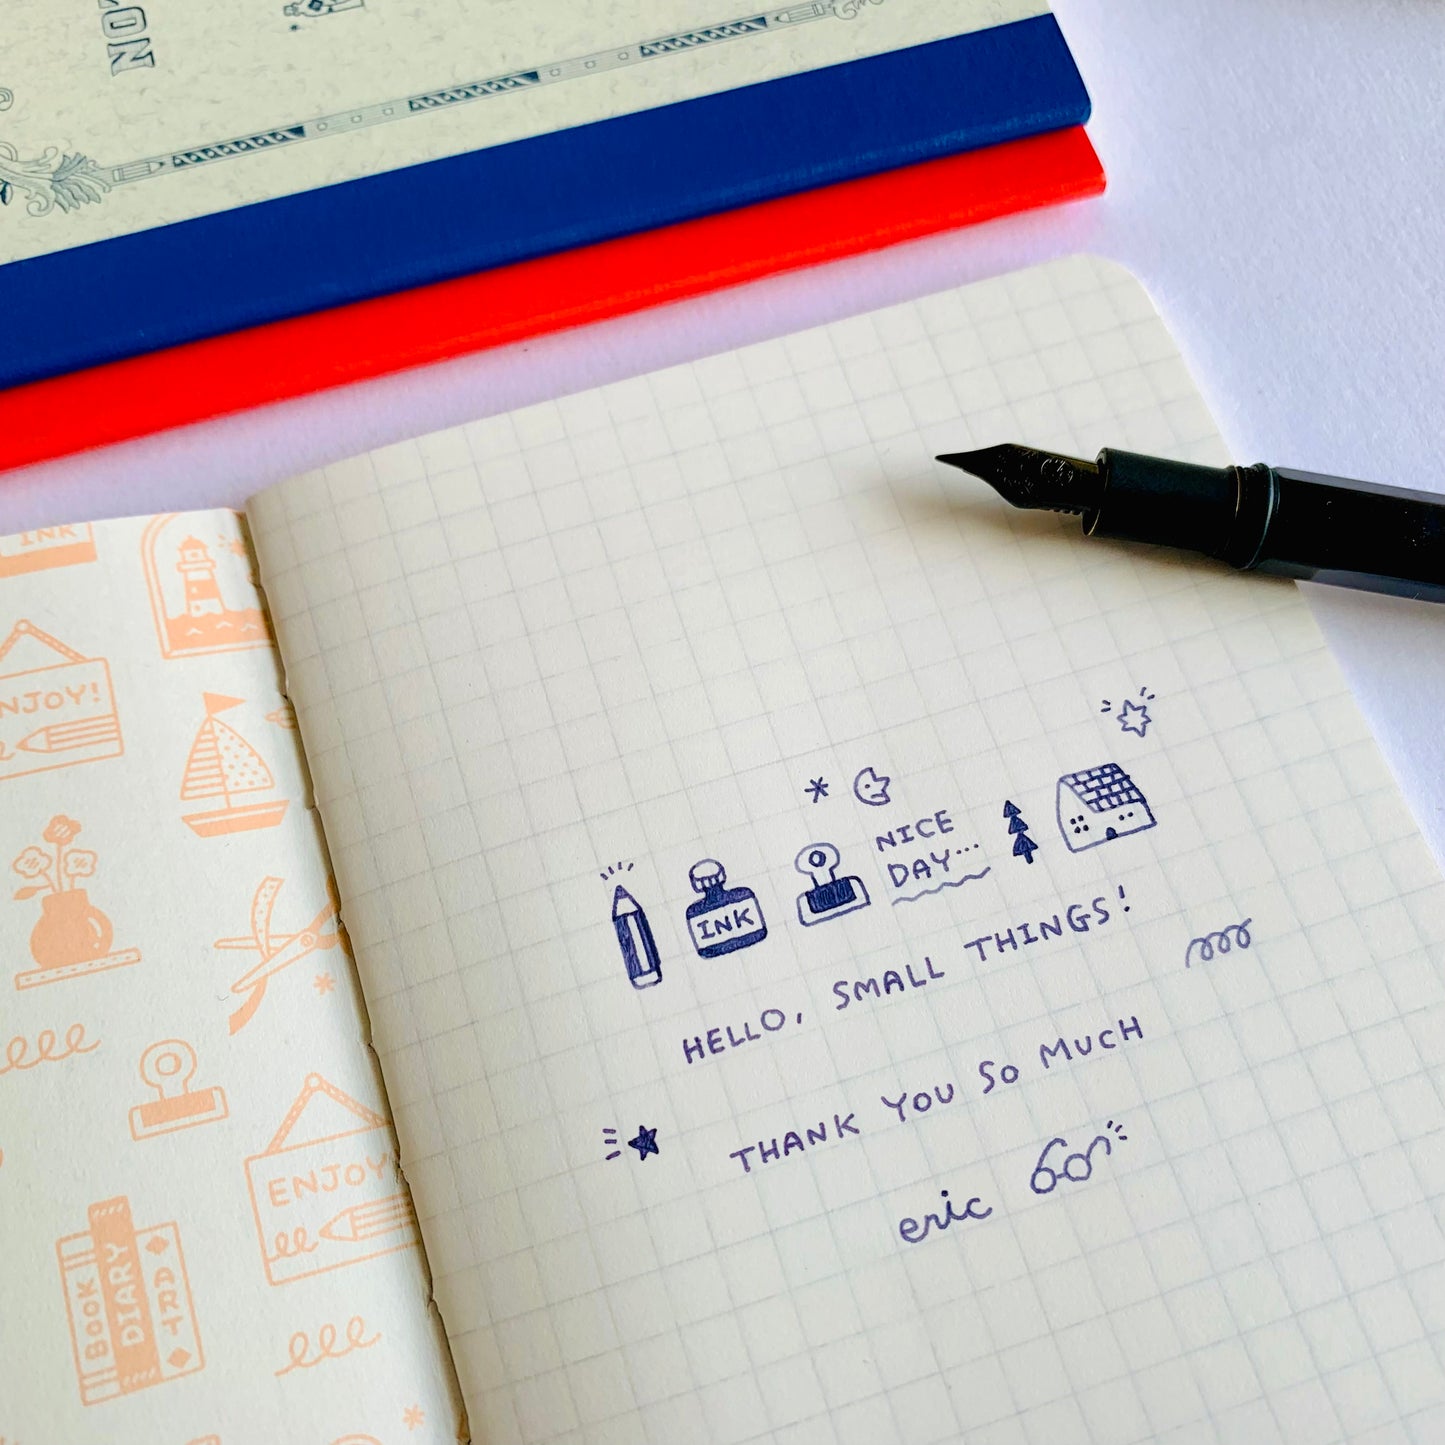 INK
ENJOY!
INK
NICE
DAY...
HELLO, SMALL THINGS!
THANK YOU SO MUCH
eric
ENJOY!
BOOK
DIARY
ART